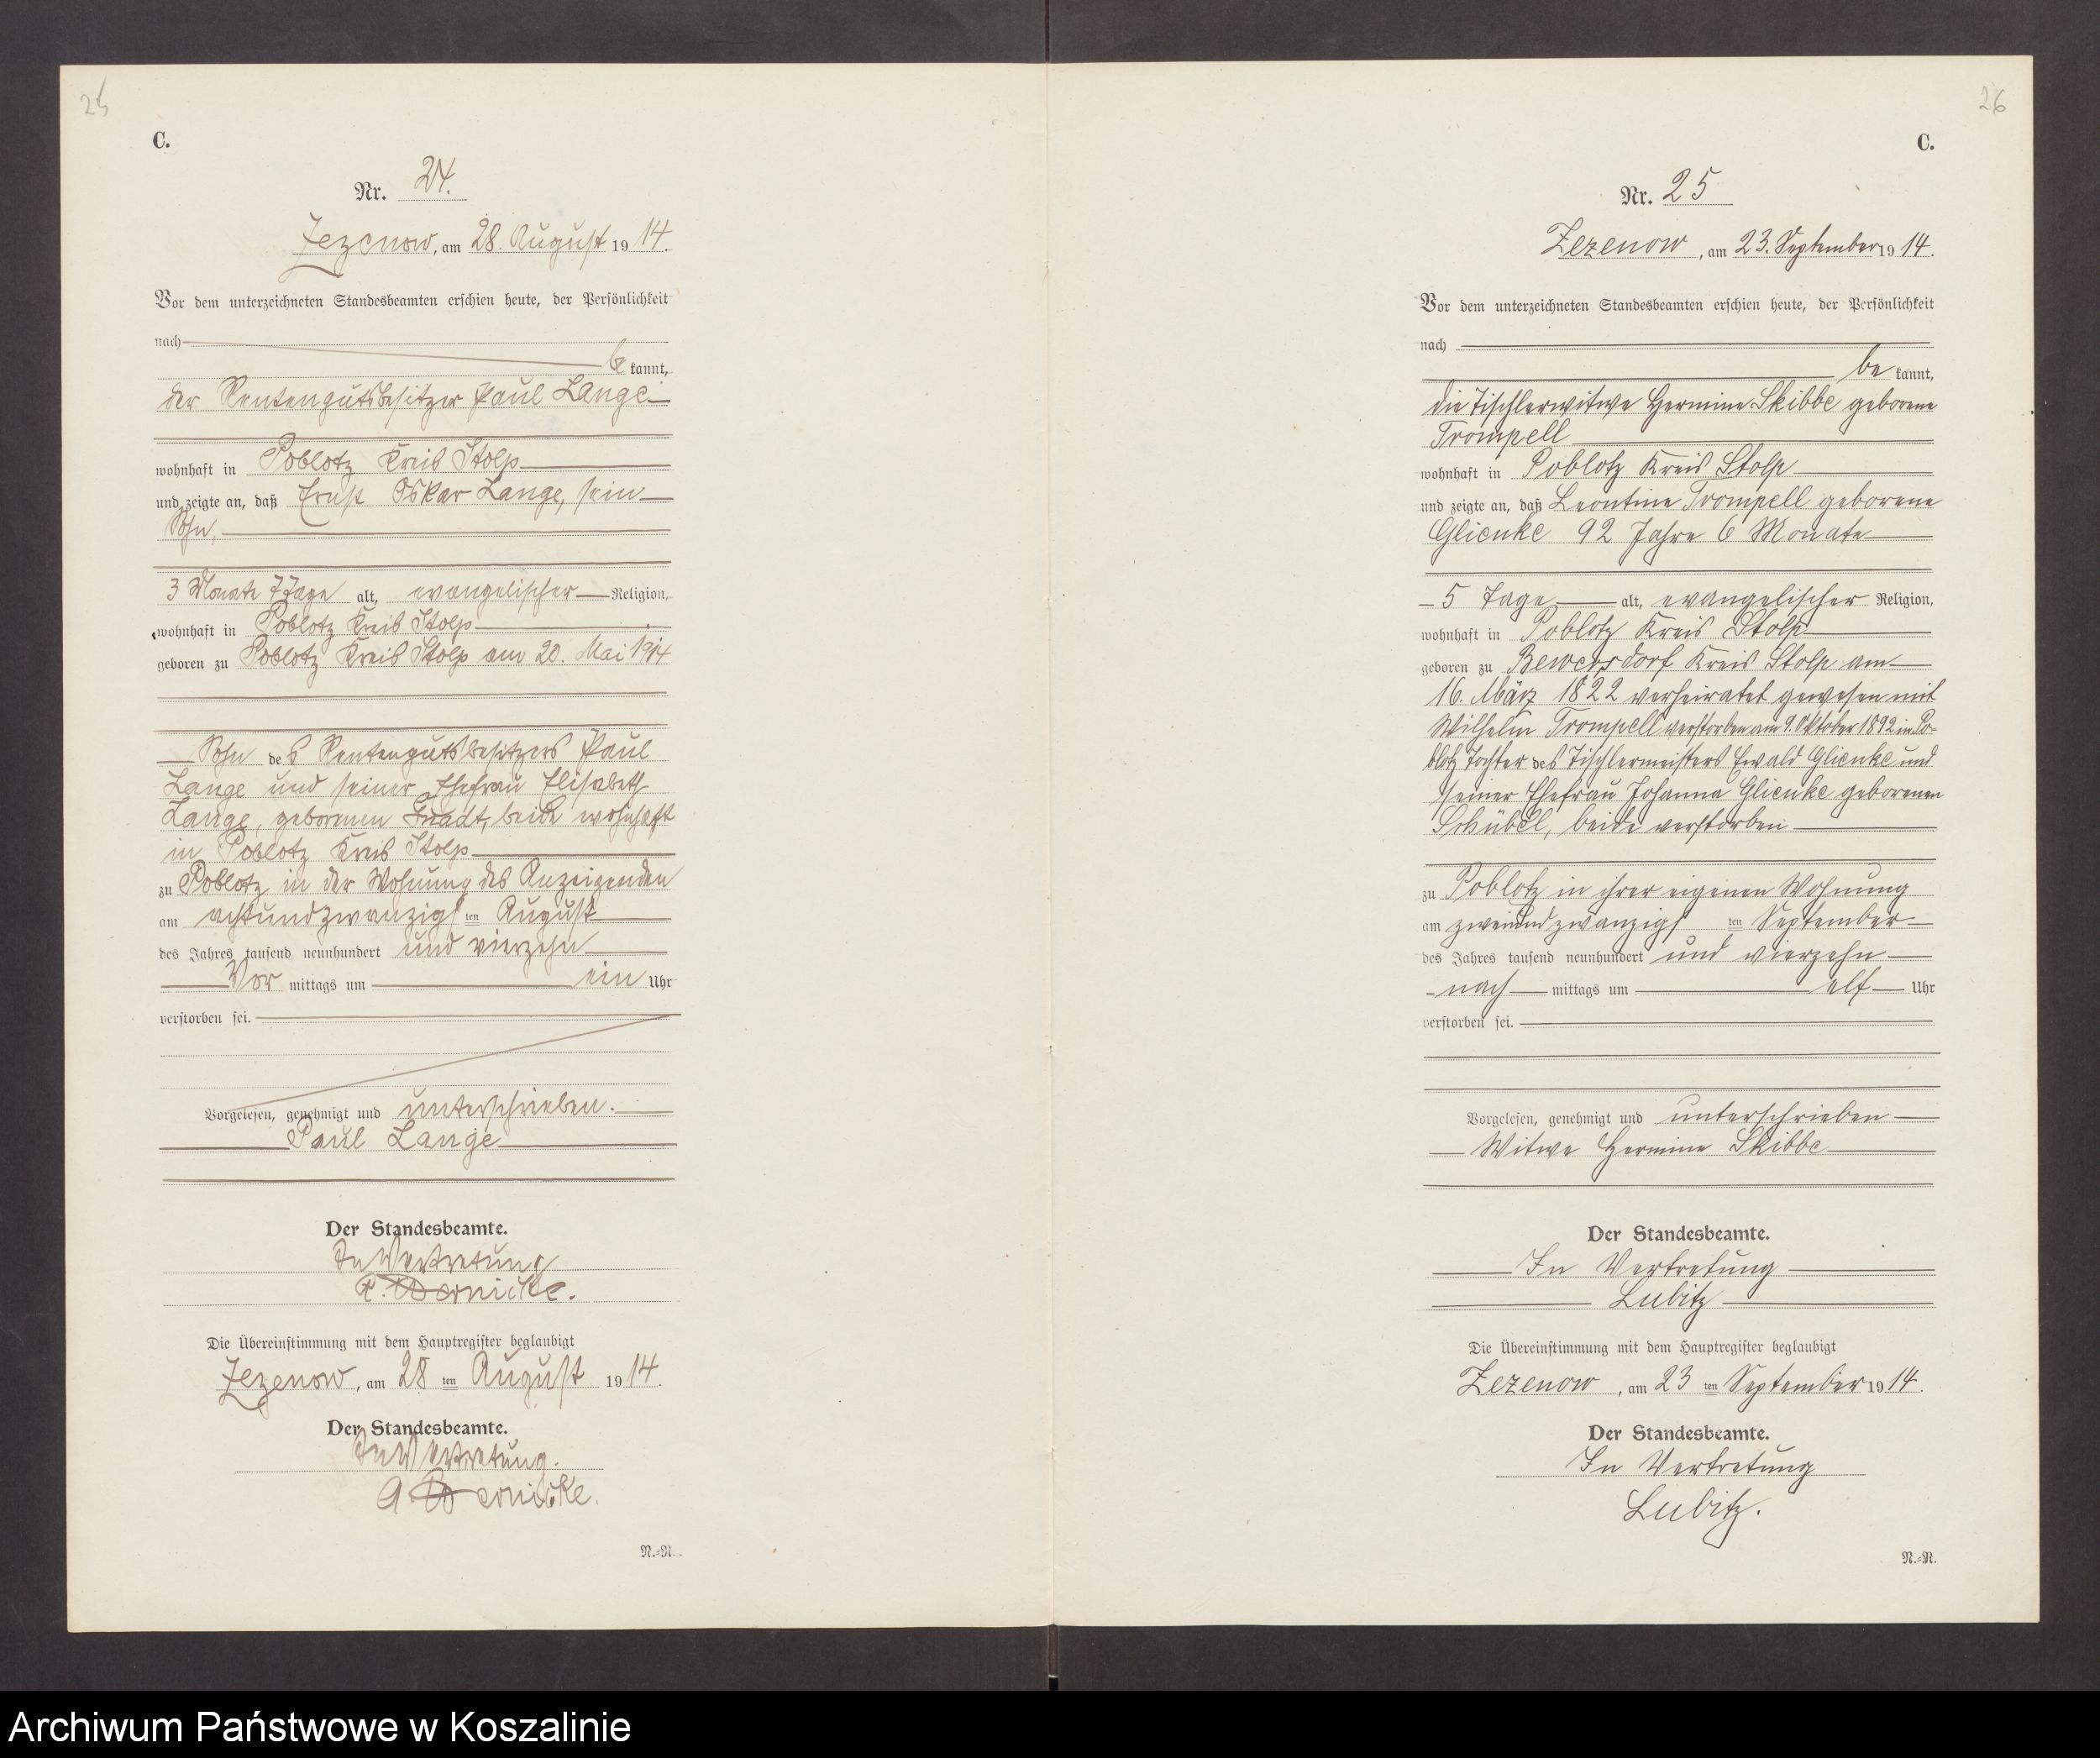 25
C.
Nr. 24.
Zezenow, am 28. August 1914.
Vor dem unterzeichneten Standesbeamten erschien heute, der Persönlichkeit
nach
be kannt,
der Rentengutsbesitzer Paul Lange
wohnhaft in Poblotz Kreis Stolp
und zeigte an, daß Ernst Oskar Lange, sein
Sohn,
3 Monate 7 Tage alt, evangelischer Religion,
wohnhaft in Poblotz Kreis Stolp
geboren zu Poblotz Kreis Stolp am 20. Mai 1914
Sohn des Rentengutsbesitzers Paul
Lange und seiner Ehefrau Elisabeth
Lange, geborenen beide wohnhaft
in Poblotz Kreis Stolp
zu Poblotz in der Wohnung des Anzeigenden
am achtundzwanzigsten August
des Jahres tausend neunhundert und vierzehn
Vor mittags um ein Uhr
verstorben sei.
Vorgelesen, genehmigt und unterschrieben.
Paul Lange
Der Standesbeamte.
In Vertretung
Die Übereinstimmung mit dem Hauptregister beglaubigt
Zezenow, am 28 ten August 1914.
Der Standesbeamte.
In Vertretung.
N.=R.
26
C.
Nr. 25
Zezenow, am 23. September 1914.
Vor dem unterzeichneten Standesbeamten erschien heute, der Persönlichkeit
nach
be kannt,
die Tischlerwitwe Hermine Skibbe geborene
Trompell
wohnhaft in Poblotz Kreis Stolp
und zeigte an, daß Leontine Trompell geborene
Glienke 92 Jahre 6 Monate
5 Tage alt, evangelischer Religion,
wohnhaft in Poblotz Kreis Stolp
geboren zu Bewersdorf Kreis Stolp am
16. März 1822 verheiratet gewesen mit
Wilhelm Trompell verstorben am 9. Oktober 1892 in Po-
blotz Tochter des Tischlermeisters Ewald Glienke und
seiner Ehefrau Johanna Glienke geborenen
Schübell, beide verstorben
zu Poblotz in ihrer eigenen Wohnung
am zweiundzwanzigsten September
des Jahres tausend neunhundert und vierzehn
nach mittags um elf Uhr
verstorben sei.
Vorgelesen, genehmigt und unterschrieben
Witwe Hermine Skibbe
Der Standesbeamte.
In Vertretung
Lubitz
Die Übereinstimmung mit dem Hauptregister beglaubigt
Zezenow, am 23 ten September 1914.
Der Standesbeamte.
In Vertretung
Lubitz.
N.=R.
Archiwum Państwowe w Koszalinie